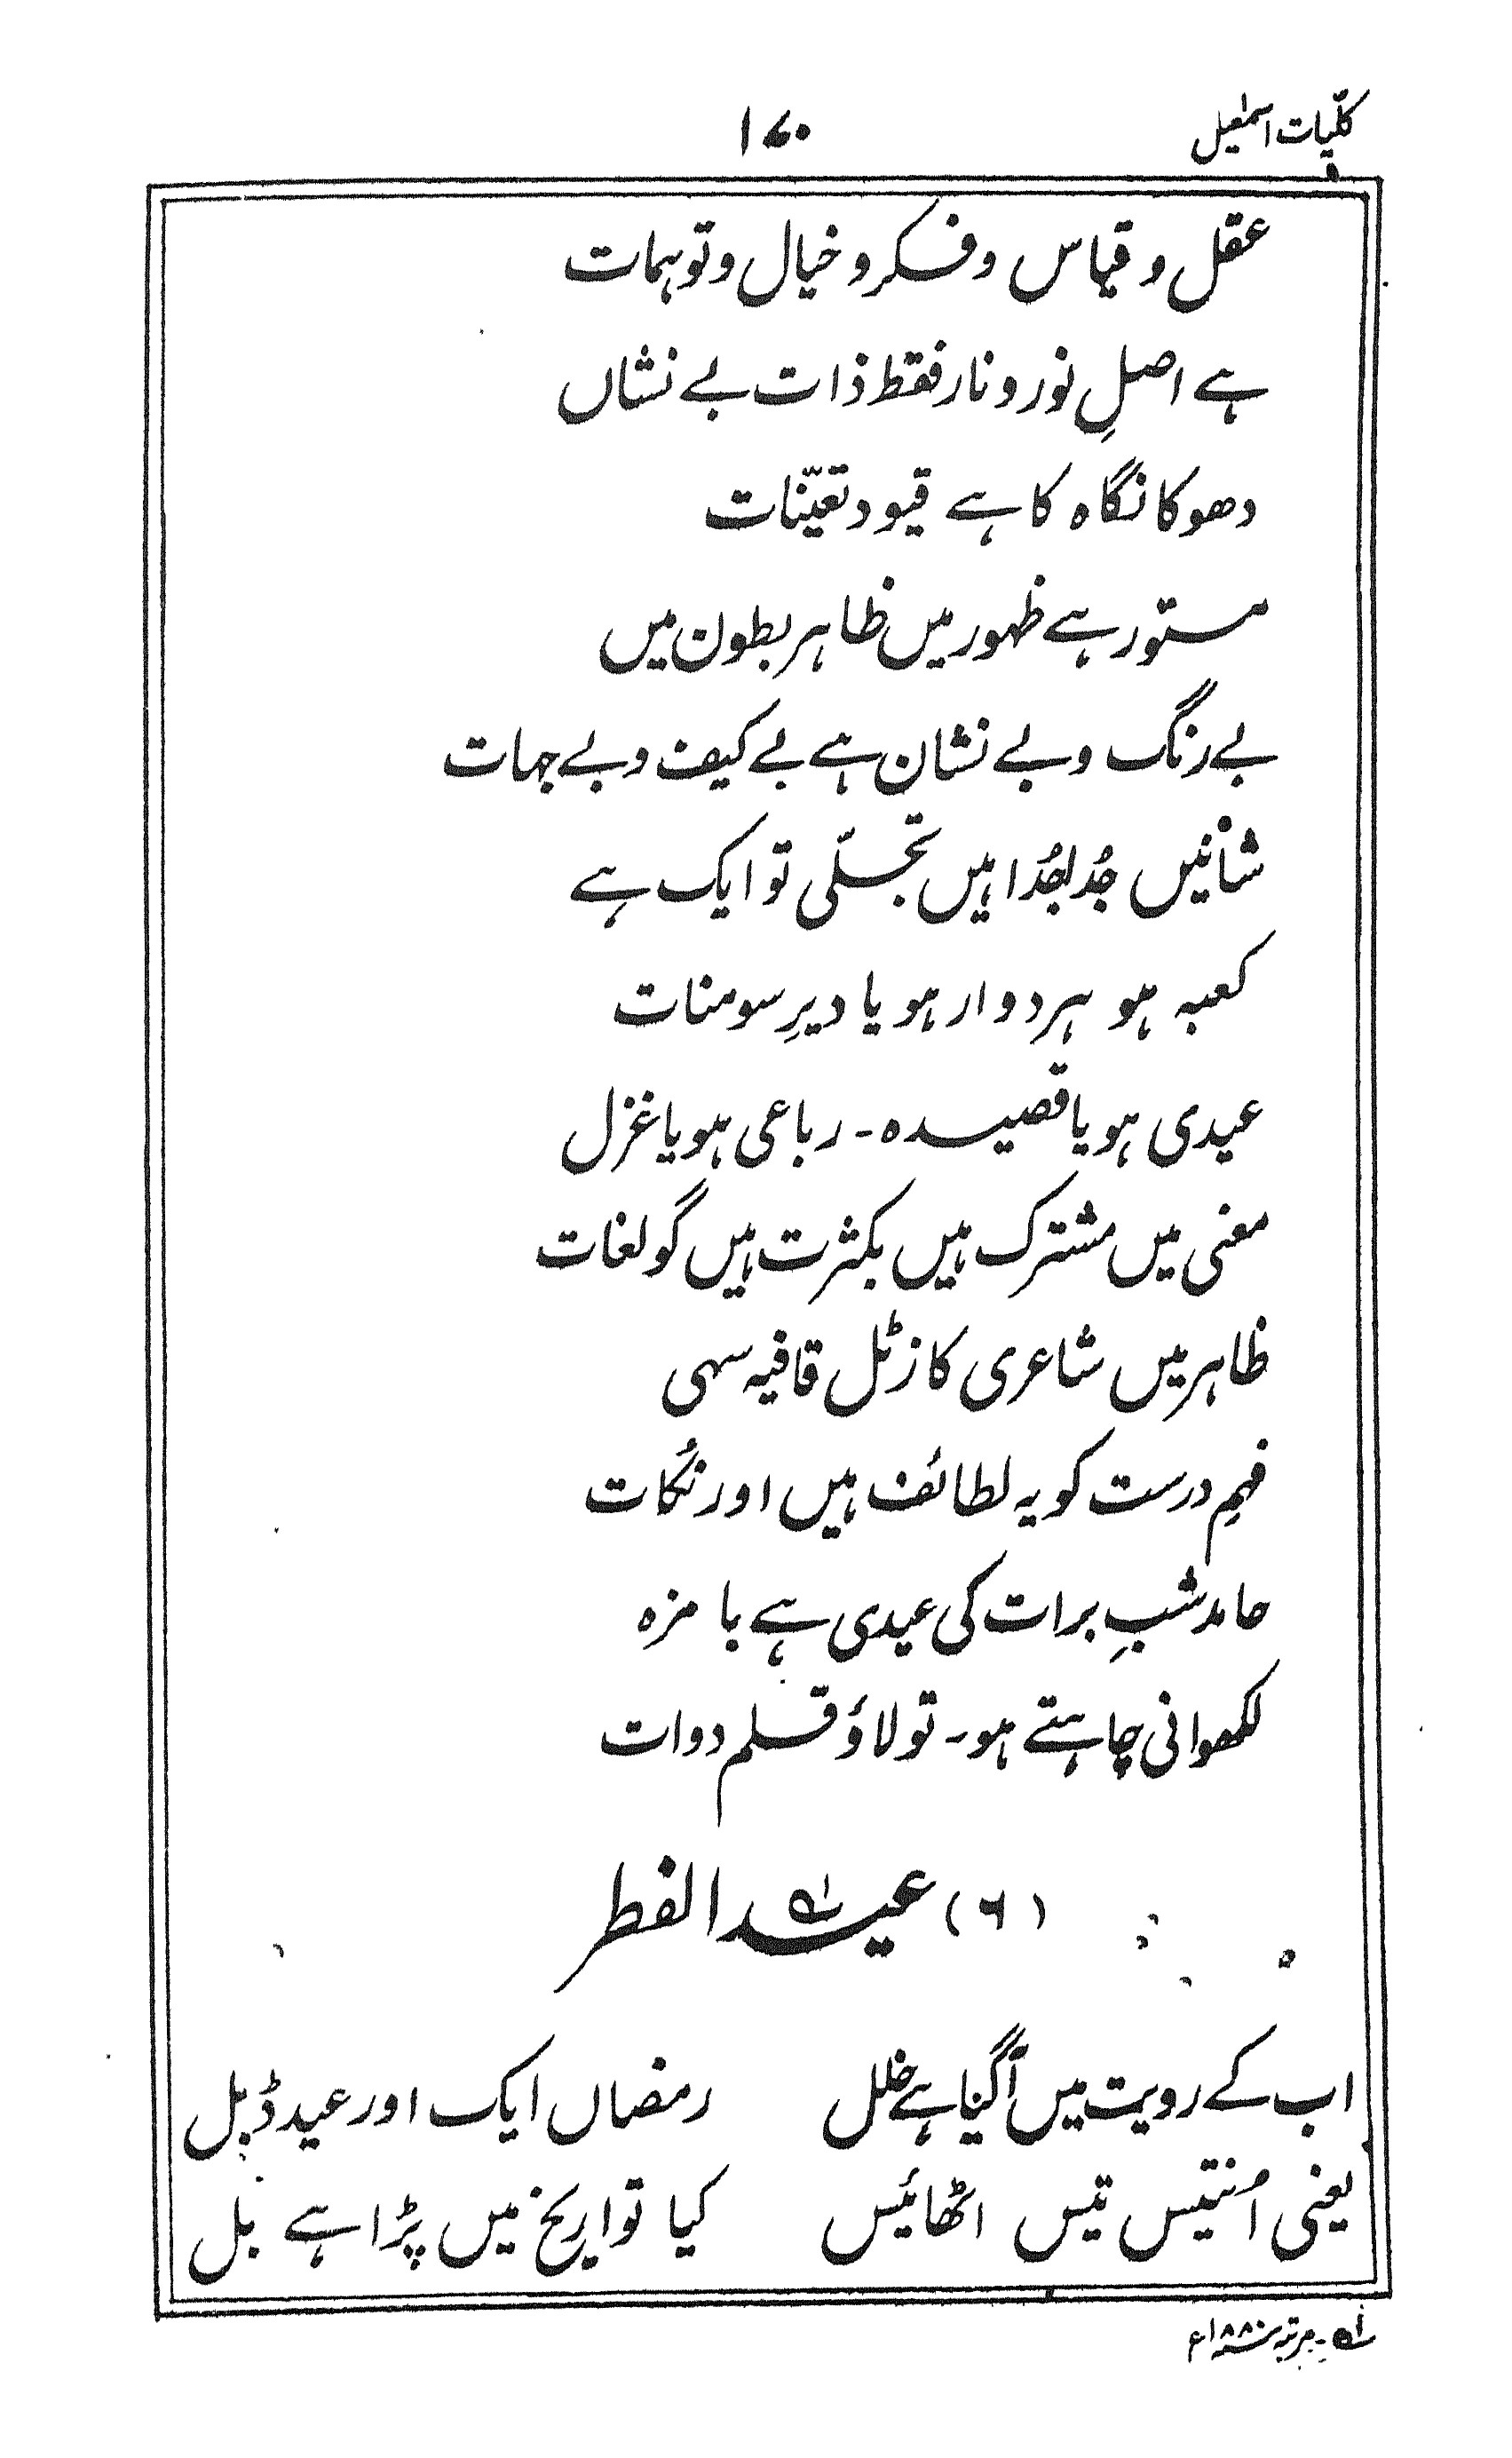 کلّیات اسمٰعیل
۱۷۰
عقل و قیاس و فکر و خیال و توہمات
ہے اصلِ نور و نار فقط ذات بے نشاں
دھوکا نگاہ کا ہے قیود تعیّنات
مستور ہے ظہور میں ظاہر بطون میں
بے رنگ و بے نشان ہے بے کیف و بے جہات
شانیں جُدا جُدا ہیں تجلّی تو ایک ہے
کعبہ ہو ہردوار ہو یا دیرِ سومنات
عیدی ہو یا قصیدہ ۔ رباعی ہو یا غزل
معنی میں مشترک ہیں بکثرت ہیں گو لغات
ظاہر میں شاعری کا زٹل قافیہ سہی
فہمِ درست کو یہ لطائف ہیں اور نُکات
حامد شبِ برات کی عیدی ہے با مزہ
لکھوانی چاہتے ہو ۔ تو لاؤ قلم دوات
(۶) عید الفطر ؂۱
اب کے رویت میں آگیا ہے خلل رمضاں ایک اور عید ڈبل
یعنی اُنتیس تیس اٹھائیس کیا تواریخ میں پڑا ہے بل
؂۱ ۔ مرتبہ ۱۸۸۰ء